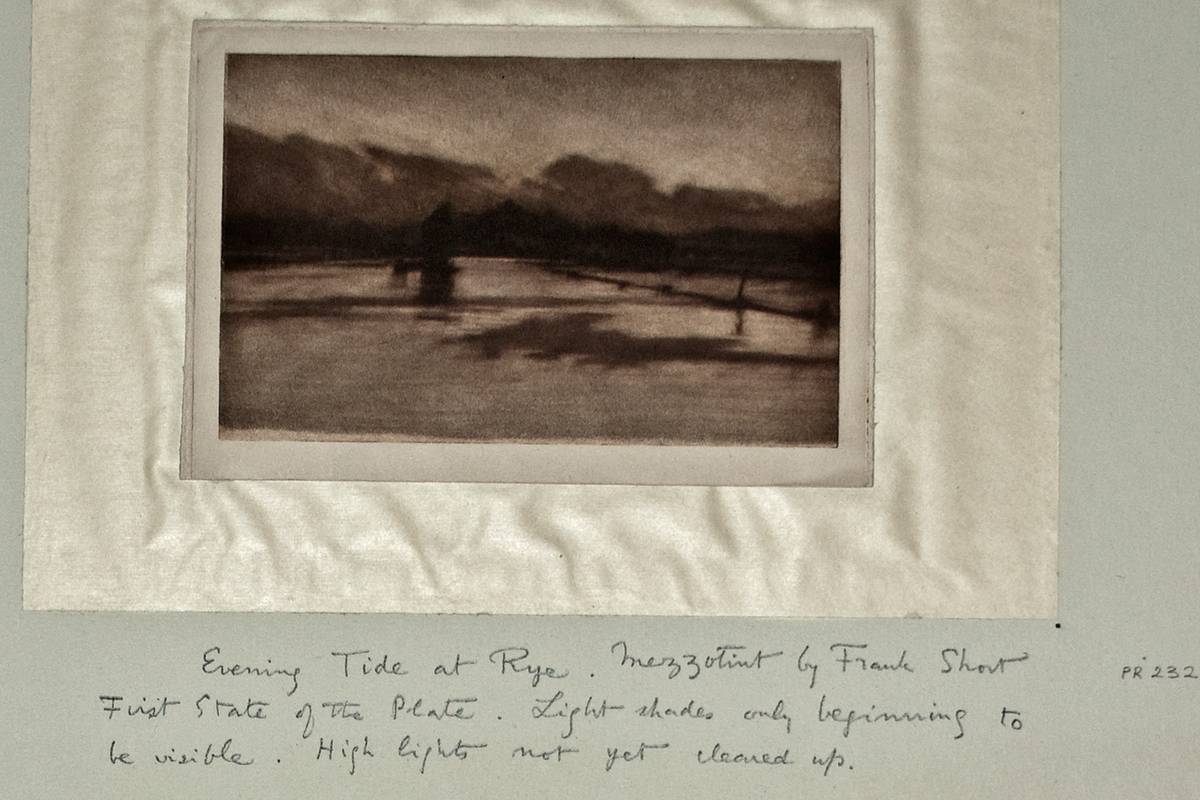 Evening Tide at Rye. Mezzotint by Frank Short
PR 232
First State of the Plate. Light shades only beginning to
be visible. High lights not yet cleared up.